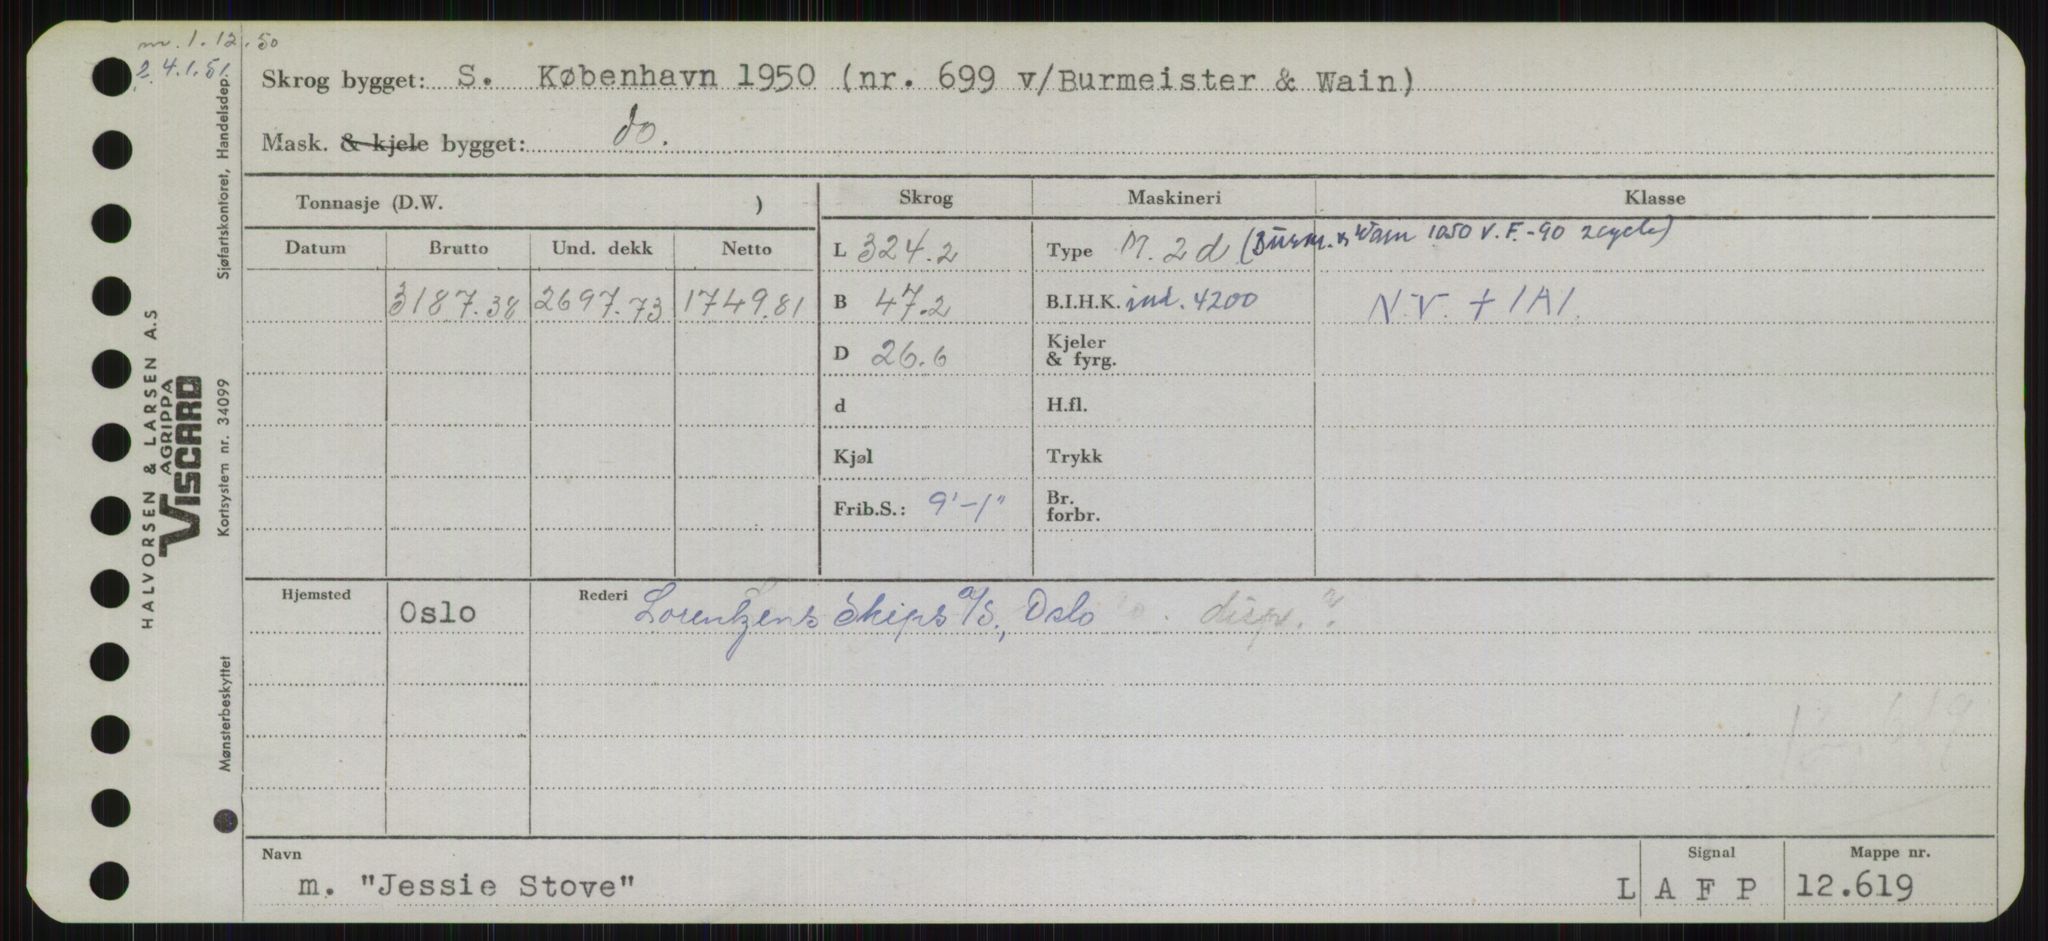 m. 1.12.50
2. 4.1.51
Skrog bygget: S. København 1950 (nr. 699 v/Burmeister & Wain)
Mask. & kjele bygget: do.
Tonnasje (D.W. )
Skrog Maskineri Klasse
Datum Brutto Und. dekk Netto
L 324.2 Type M. 2 d (Burm. & Wain 1050 V.F.-90 2cycle)
3187.38 2697.73 1749.81 B 47.2 B.I.H.K. ind. 4200 N.V. + 1A1.
D 26.6 Kjeler
& fyrg.
d H.fl.
Kjøl Trykk
Frib.S.: 9'-1" Br.
forbr.
Hjemsted Oslo Rederi Lorentzens Skips a/s., Oslo disp. ?
Navn Signal Mappe nr.
m. "Jessie Stove" L A F P 12.619
HALVORSEN & LARSEN A.S
AGRIPPA
VISCARD
Sjøfartskontoret, Handelsdep.
Kortsystem nr. 34099
Mønsterbeskyttet